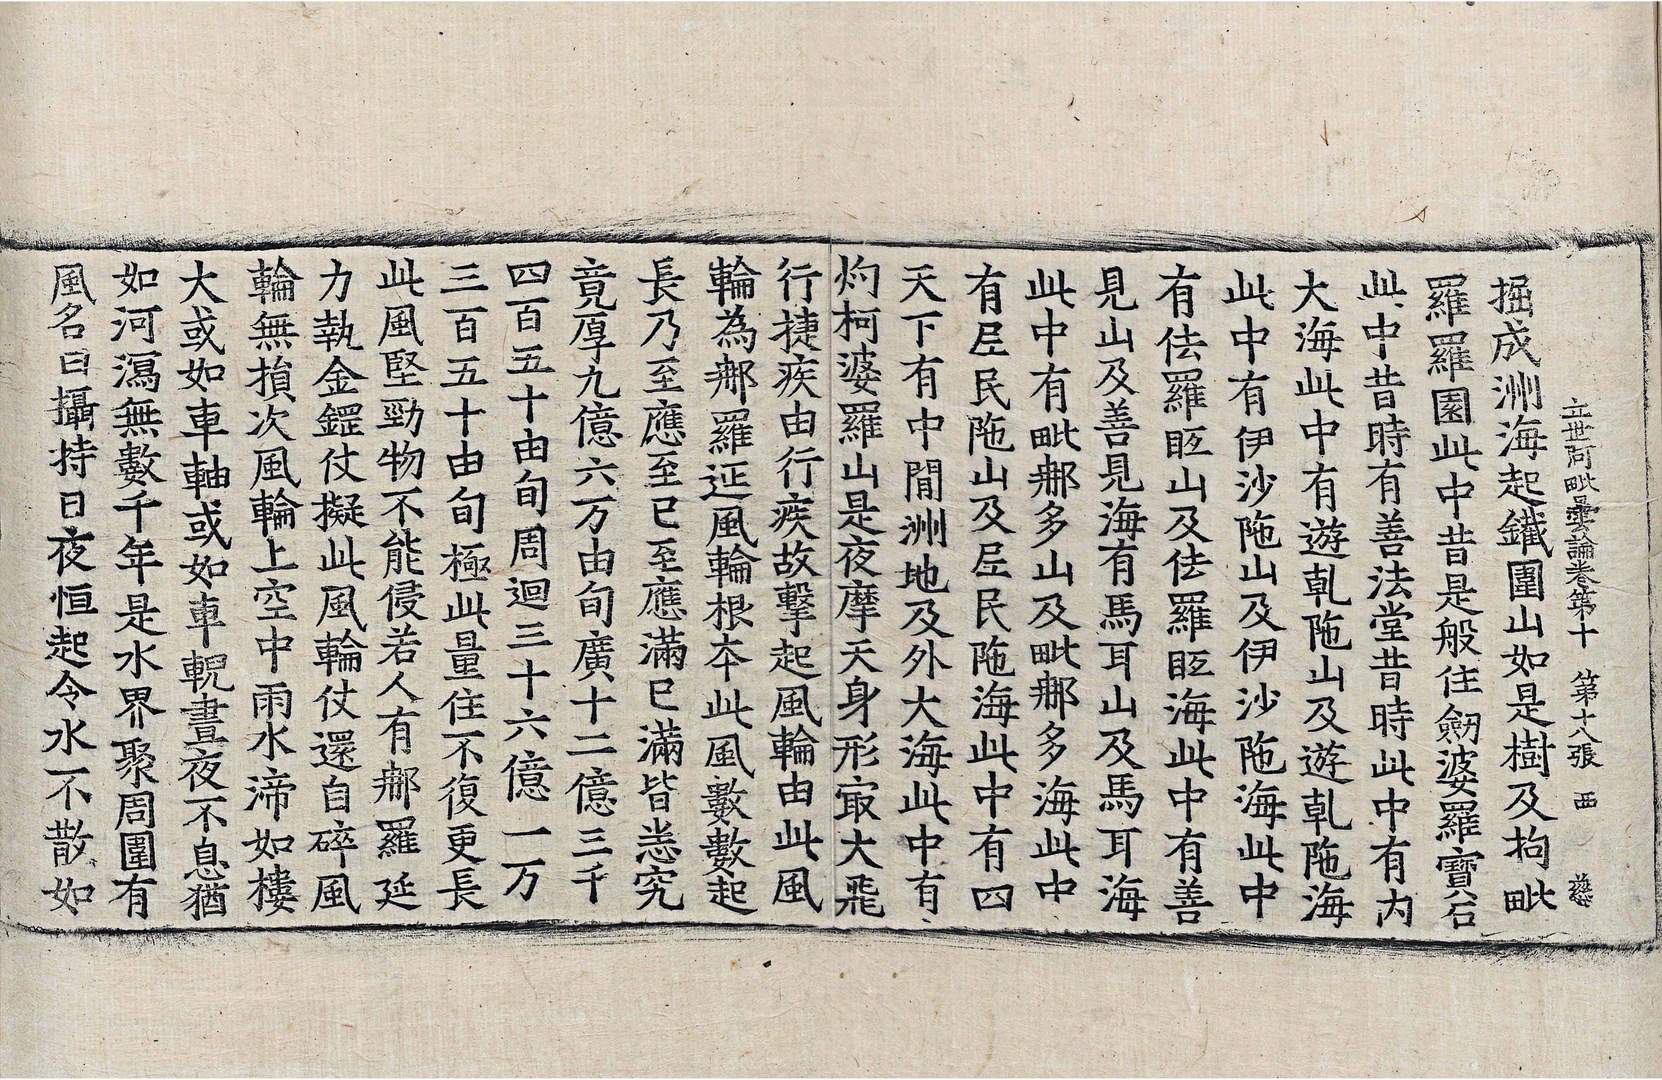 立世阿毗曇論卷第十 第十八張 西 慈
掘成洲海起鐵圍山如是樹及拘毗
羅羅園此中昔是般住劒婆羅寶石
此中昔時有善法堂昔時此中有內
大海此中有遊乹陁山及遊乹陁海
此中有伊沙陁山及伊沙陁海此中
有佉羅眍山及佉羅眍海此中有善
見山及善見海有馬耳山及馬耳海
此中有毗𨚗多山及毗𨚗多海此中
有𡰱民陁山及𡰱民陁海此中有四
天下有中閒洲地及外大海此中有
灼柯婆羅山是夜摩天身形㝡大飛
行捷疾由行疾故擊起風輪由此風
輪為𨚗羅延風輪根夲此風數數起
長乃至應至已至應滿已滿皆恙究
竟厚九億六万由旬廣十二億三千
四百五十由旬周迴三十六億一万
三百五十由旬極此量住不復更長
此風堅勁物不能侵若人有𨚗羅延
力執金鏗仗擬此風輪仗還自碎風
輪無損次風輪上空中雨水渧如樓
大或如車軸或如車輗晝夜不息猶
如河瀉無數千年是水界聚周圍有
風名曰攝持日夜恒起令水不散如